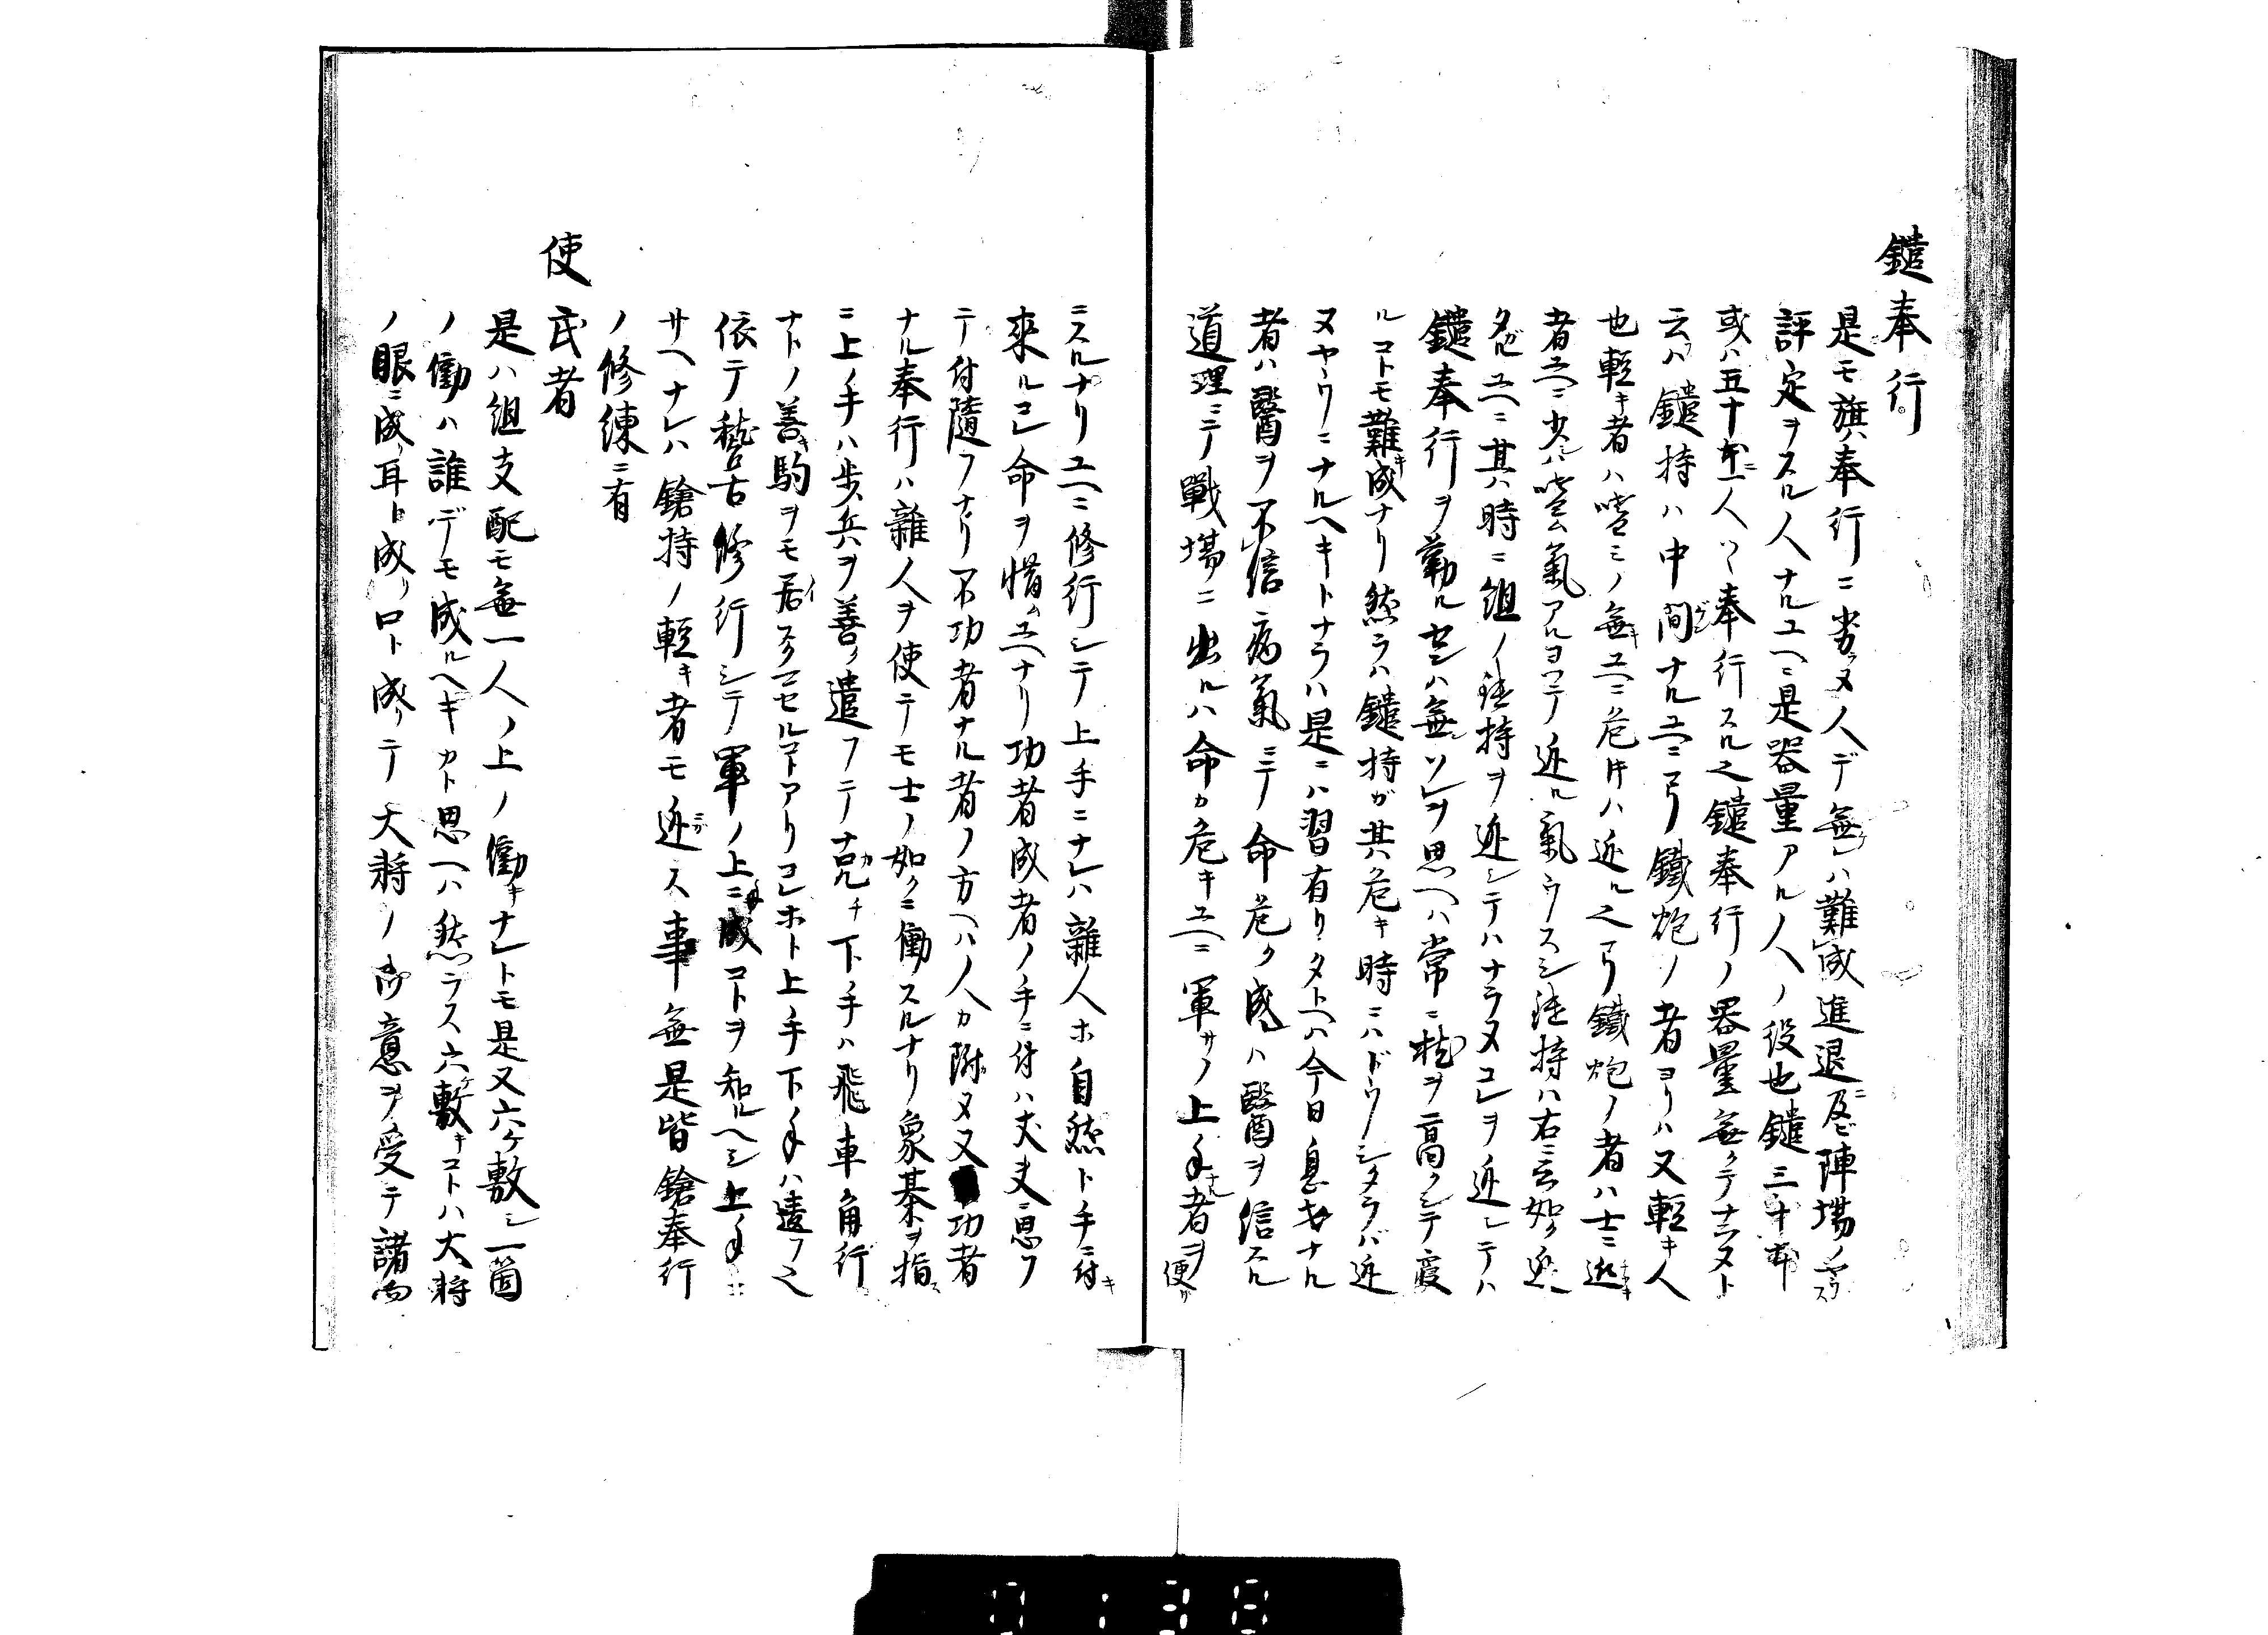 鑓奉行
是モ旗奉行ニ劣ヌ人デ無レハ難成進退及ビ陣場ノヤウス
評定ヲスル人ナルユヘニ是器量アル人ノ役也鑓三十本
或ハ五十本ニ一人ツヽ奉行スル也鑓奉行ノ器量無クテナラヌト
云ハ鑓持ハ中間ナルユヘニ弓鐵炮ノ者ヨリハ又輕キ人
也輕キ者ハ嗜ミノ無キユヘニ危片ハ逃ル也弓鐵炮ノ者ハ士ニ近キ
者ユヘニ少ハ嗜ム氣アルヨツテ逃ル氣ウスシ鑓持ハ右ニ云如ク逃
タガルユヘニ其時ニ組ノ鑓持ヲ逃シテハナラヌコレヲ逃シテハ
鑓奉行ヲ勤ル セハ無ソレヲ思ヘハ常ニ枕ヲ高クシテ寢
ルコトモ難成ナリ然ラハ鑓持ガ其危キ時ニハドウシタラバ逃
ヌヤウニナルヘキトナラハ是ニハ習有リタトヘハ今日息才ナル
者ハ醫ヲ不信病氣ニテ命危ク成レハ醫ヲ信スル
道理ニテ戰場ニ出ルハ命カ危キユヘニ軍サノ上手ナル者ヲ便リ
ニスルナリユヘニ修行シテ上手ニナレハ雜人ホ自然ト手ニ付キ
來ルコレ命ヲ惜ムユヘナリ功者成者ノ手ニ付ハ丈夫ニ思フ
テ付隨フナリ不功者ナル者ノ方ヘハ人カ附ヌ又功者
ナル奉行ハ雜人ヲ使テモ士ノ如クニ働スルナリ象棊ヲ指ス
ニ上ノ手ハ歩兵ヲ善ク遣フテナカチ下ノ手ハ飛車角行
ナトノ善キ駒ヲモ居スクマセルコトアリコレホト上手下手ハ違フ也
依テ稽古修行シテ軍ノ上手ニ成コトヲ知ルヘシ上手ニ
サヘナレハ鎗持ノ輕キ者モ逃ス事無是皆鎗奉行
ノ修練ニ有
使武者
是ハ組支配モ無一人ノ上ノ働キナレトモ是又六ケ敷シ一箇
ノ働ハ誰デモ成ルヘキカト思ヘハ然ラス六ケ敷キコトハ大將
ノ眼ニ成リ耳ト成リ口ト成リテ大將ノ御意ヲ受テ諸向